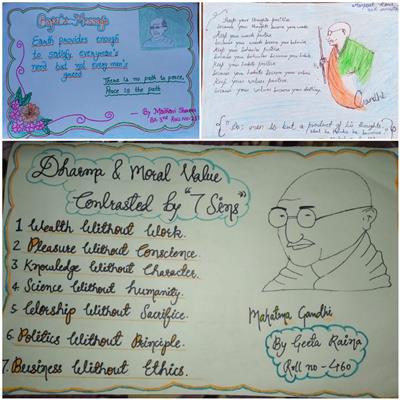 Gandhi's Message
Earth provides enough
to satisfy everyone's
need but not every men's
greed
There is no path to peace,
Peace is the path
By
BA 3rd Roll No-
Keep your thoughts positive
because your thoughts become your words
Keep your words positive
because your words become your behavior
Keep your behavior positive
because your behavior becomes your habits
Keep your habits positive
because your habits become your values
Keep your values positive
because your values become your destiny.
Gandhi
man is but a product of his thoughts
what he thinks he becomes
Dharma & Moral Value
Contrasted by "7 Sins"
1 Wealth Without Work.
2 Pleasure Without Conscience.
3 Knowledge Without Character.
4 Science Without Humanity.
5 Worship Without Sacrifice.
6 Politics Without Principle.
7. Business Without Ethics.
Mahatma Gandhi
By Geeta Raina
Roll no - 460